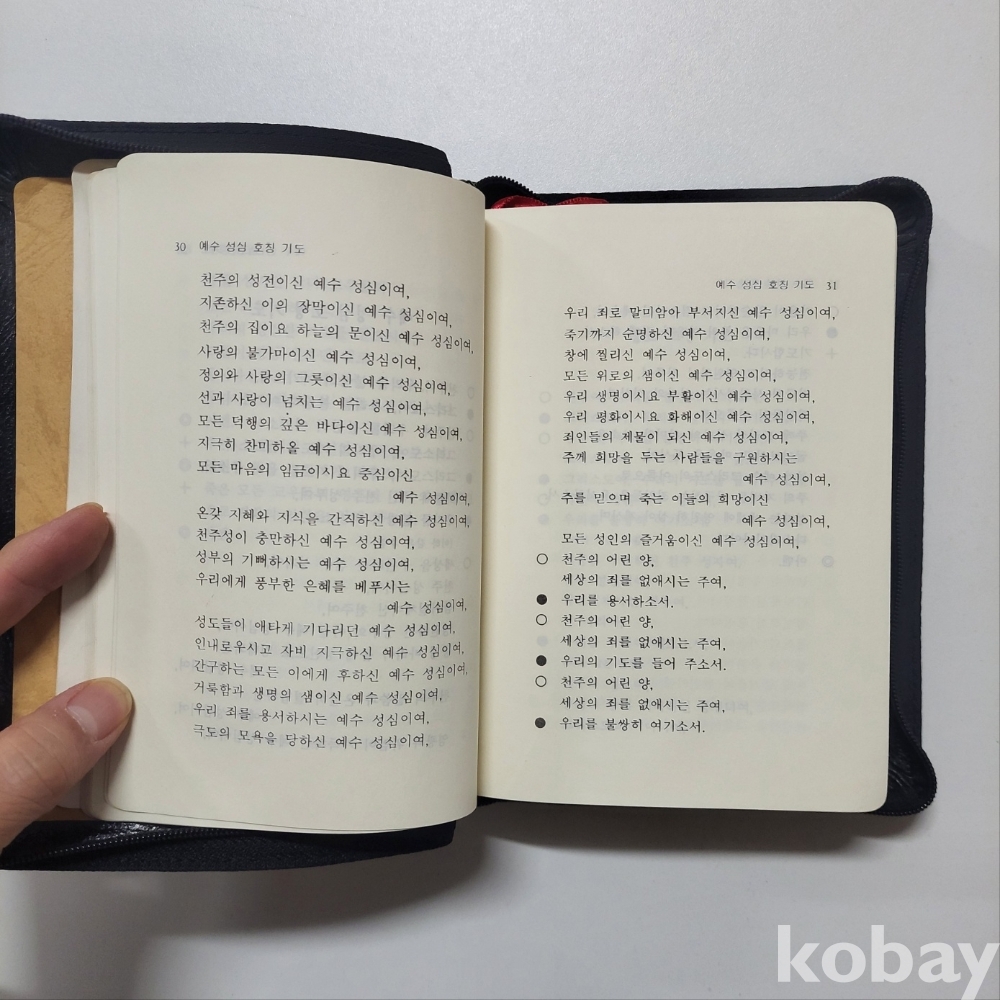 30 예수 성심 호칭 기도
천주의 성전이신 예수 성심이여,
지존하신 이의 장막이신 예수 성심이여,
천주의 집이요 하늘의 문이신 예수 성심이여,
사랑의 불가마이신 예수 성심이여,
정의와 사랑의 그릇이신 예수 성심이여,
선과 사랑이 넘치는 예수 성심이여,
모든 덕행의 깊은 바다이신 예수 성심이여,
지극히 찬미하올 예수 성심이여,
모든 마음의 임금이시요 중심이신
예수 성심이여,
온갖 지혜와 지식을 간직하신 예수 성심이여,
천주성이 충만하신 예수 성심이여,
성부의 기뻐하시는 예수 성심이여,
우리에게 풍부한 은혜를 베푸시는
예수 성심이여,
성도들이 애타게 기다리던 예수 성심이여,
인내로우시고 자비 지극하신 예수 성심이여,
간구하는 모든 이에게 후하신 예수 성심이여,
거룩함과 생명의 샘이신 예수 성심이여,
우리 죄를 용서하시는 예수 성심이여,
극도의 모욕을 당하신 예수 성심이여,
예수 성심 호칭 기도 31
우리 죄로 말미암아 부서지신 예수 성심이여,
죽기까지 순명하신 예수 성심이여,
창에 찔리신 예수 성심이여,
모든 위로의 샘이신 예수 성심이여,
우리 생명이시요 부활이신 예수 성심이여,
우리 평화이시요 화해이신 예수 성심이여,
죄인들의 제물이 되신 예수 성심이여,
주께 희망을 두는 사람들을 구원하시는
예수 성심이여,
주를 믿으며 죽는 이들의 희망이신
예수 성심이여,
모든 성인의 즐거움이신 예수 성심이여,
○ 천주의 어린 양,
세상의 죄를 없애시는 주여,
● 우리를 용서하소서.
○ 천주의 어린 양,
세상의 죄를 없애시는 주여,
● 우리의 기도를 들어 주소서.
○ 천주의 어린 양,
세상의 죄를 없애시는 주여,
● 우리를 불쌍히 여기소서.
kobay